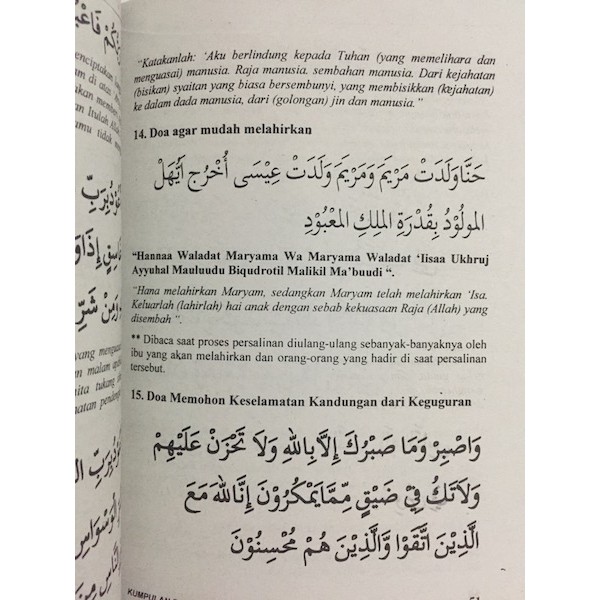 "Katakanlah: 'Aku berlindung kepada Tuhan (yang memelihara dan
menguasai) manusia. Raja manusia. sembahan manusia. Dari kejahatan
(bisikan) syaitan yang biasa bersembunyi, yang membisikkan (kejahatan)
ke dalam dada manusia, dari (golongan) jin dan manusia."
14. Doa agar mudah melahirkan
حَنَّاوَلَدَتْ مَرْيَمَ وَمَرْيَمَ وَلَدَتْ عِيْسَى أُخْرُجْ أَيُّهَا
المَوْلُوْدُ بِقُدْرَةِ المَلِكِ المَعْبُوْدِ
"Hannaa Waladat Maryama Wa Maryama Waladat 'Iisaa Ukhruj
Ayyuhal Mauluudu Biqudrotil Malikil Ma'buudi ".
"Hana melahirkan Maryam, sedangkan Maryam telah melahirkan 'Isa.
Keluarlah (lahirlah) hai anak dengan sebab kekuasaan Raja (Allah) yang
disembah ".
** Dibaca saat proses persalinan diulang-ulang sebanyak-banyaknya oleh
ibu yang akan melahirkan dan orang-orang yang hadir di saat persalinan
tersebut.
15. Doa Memohon Keselamatan Kandungan dari Keguguran
وَاصْبِرْ وَمَا صَبْرُكَ إِلاَّ بِاللهِ وَلاَ تَحْزَنْ عَلَيْهِمْ
وَلاَتَكُ فِيْ ضَيْقٍ مِّمَّايَمْكُرُوْنَ إِنَّاللهَ مَعَ
الَّذِيْنَ اتَّقَوْا وَّالَّذِيْنَ هُمْ مُحْسِنُوْنَ
KUMPULAN